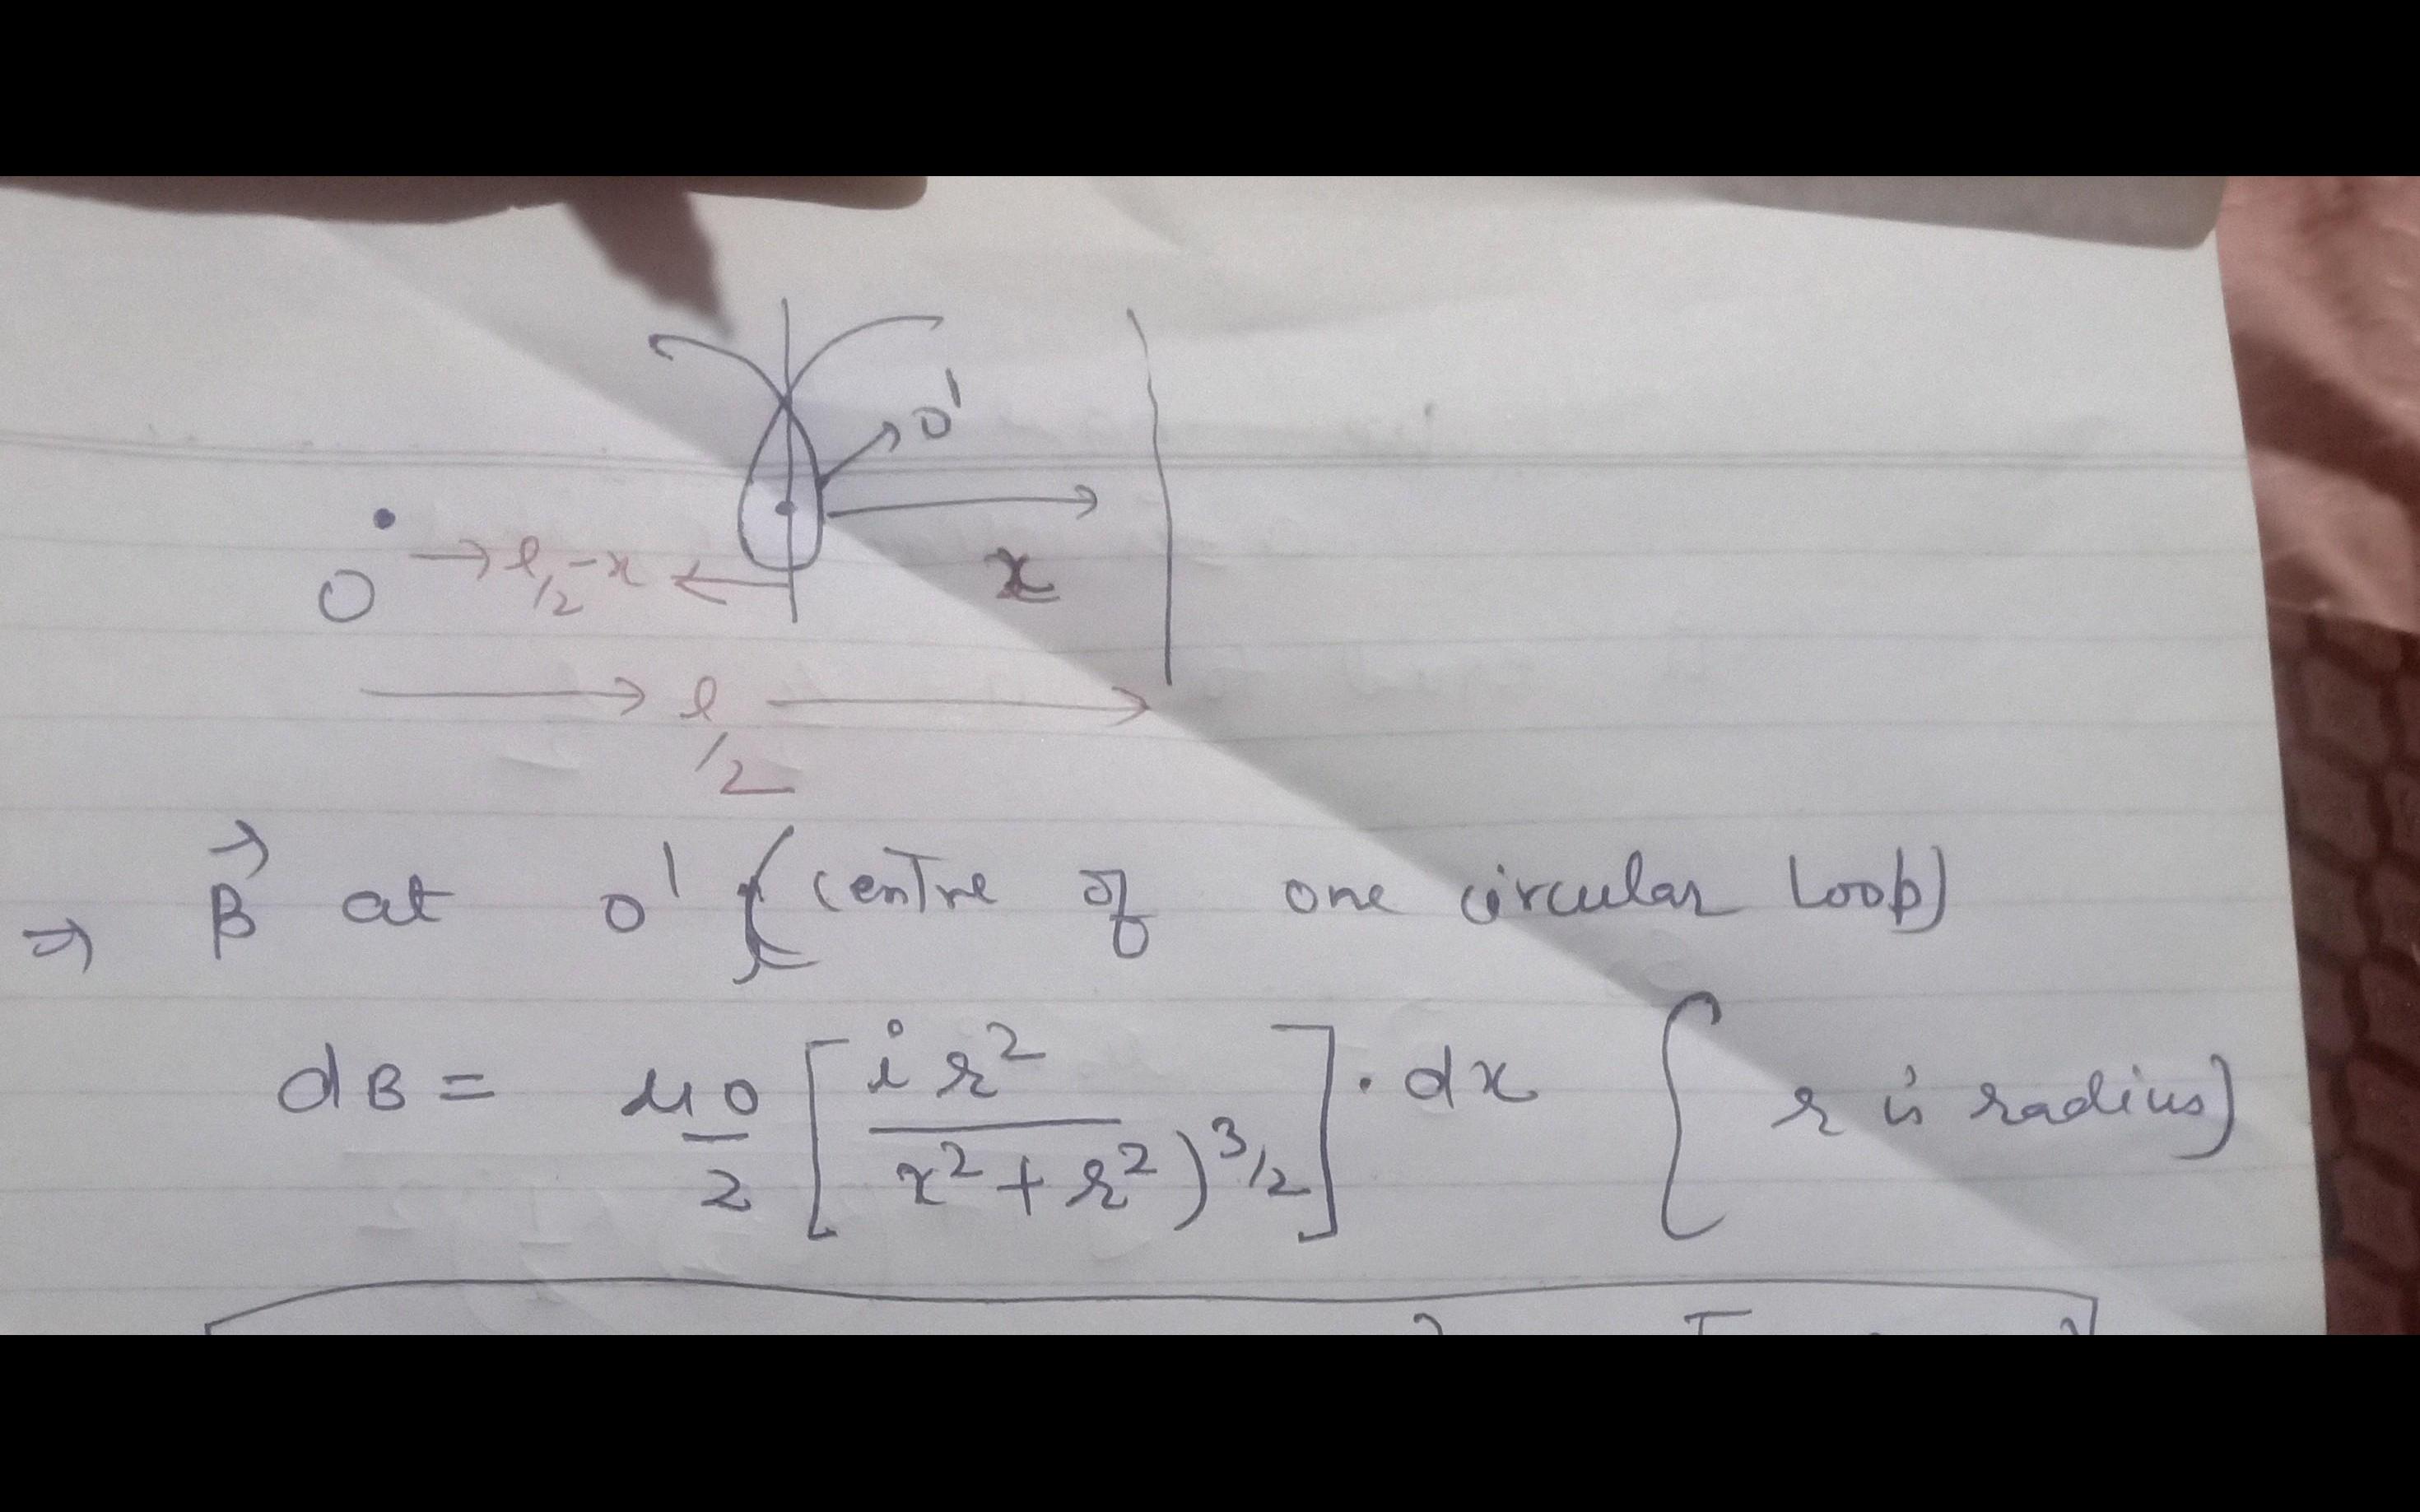 O'
O → l/2 - x ←
x
→ l/2 →
⇒ B⃗ at O' (centre of one circular loop)
dB = μ0/2 [ i r² / x² + r² )^3/2 ] . dx { r is radius)